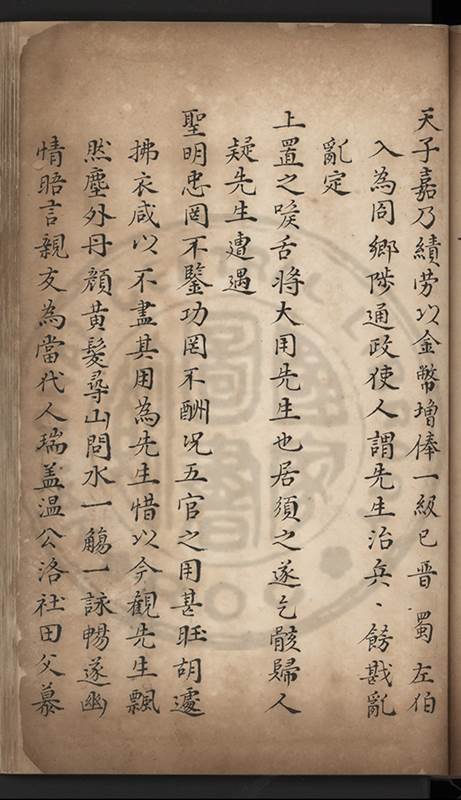 天子嘉乃績劳以金幣增俸一級已晋蜀左伯
入為囧卿陟通政使人謂先生治兵、餝戡亂
亂定
上置之喉舌將大用先生也居須之遂乞骸歸人
疑先生遭遇
聖明忠罔不鑒功罔不酬况五官之用甚旺胡遽
拂衣咸以不盡其用為先生惜以今觀先生飄
然塵外丹顔黄髮尋山問水一觴一詠暢遂幽
情晤言親友為當代人瑞盖温公洛社田父慕